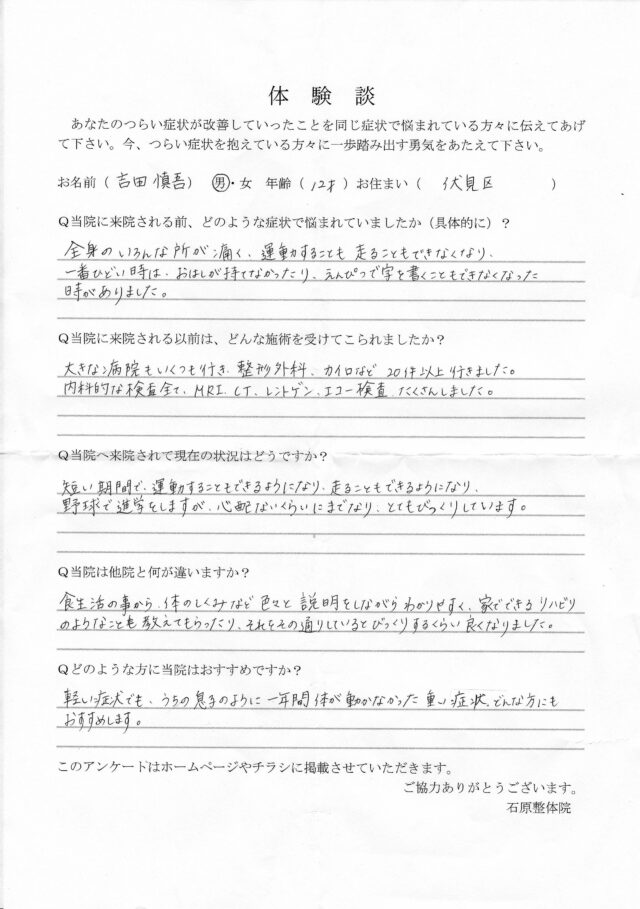 体 験 談
あなたのつらい症状が改善していったことを同じ症状で悩まれている方々に伝えてあげ
て下さい。今、つらい症状を抱えている方々に一歩踏み出す勇気をあたえて下さい。
お名前（ 吉田 慎吾 ）男・女 年齢（ 12才 ）お住まい（ 伏見区 ）
Q当院に来院される前、どのような症状で悩まれていましたか（具体的に）？
全身のいろんな所が痛く、運動することも走ることもできなくなり、
一番ひどい時は、おはしが持てなかったり、えんぴつで字を書くこともできなくなった
時がありました。
Q当院に来院される以前は、どんな施術を受けてこられましたか？
大きな病院もいくつも行き、整形外科、カイロなど 20件以上行きました。
内科的な検査全て、MRI、CT、レントゲン、エコー検査、たくさんしました。
Q当院へ来院されて現在の状況はどうですか？
短い期間で、運動することもできるようになり、走ることもできるようになり、
野球で進学をしますが、心配ないくらいにまでなり、とてもびっくりしています。
Q当院は他院と何が違いますか？
食生活の事から、体のしくみなど色々と説明をしながらわかりやすく、家でできるリハビリ
のようなことも教えてもらったり、それをその通りしているとびっくりするくらい良くなりました。
Qどのような方に当院はおすすめですか？
軽い症状でも、うちの息子のように一年間体が動かなかった重い症状、どんな方にも
おすすめします。
このアンケートはホームページやチラシに掲載させていただきます。
ご協力ありがとうございます。
石原整体院